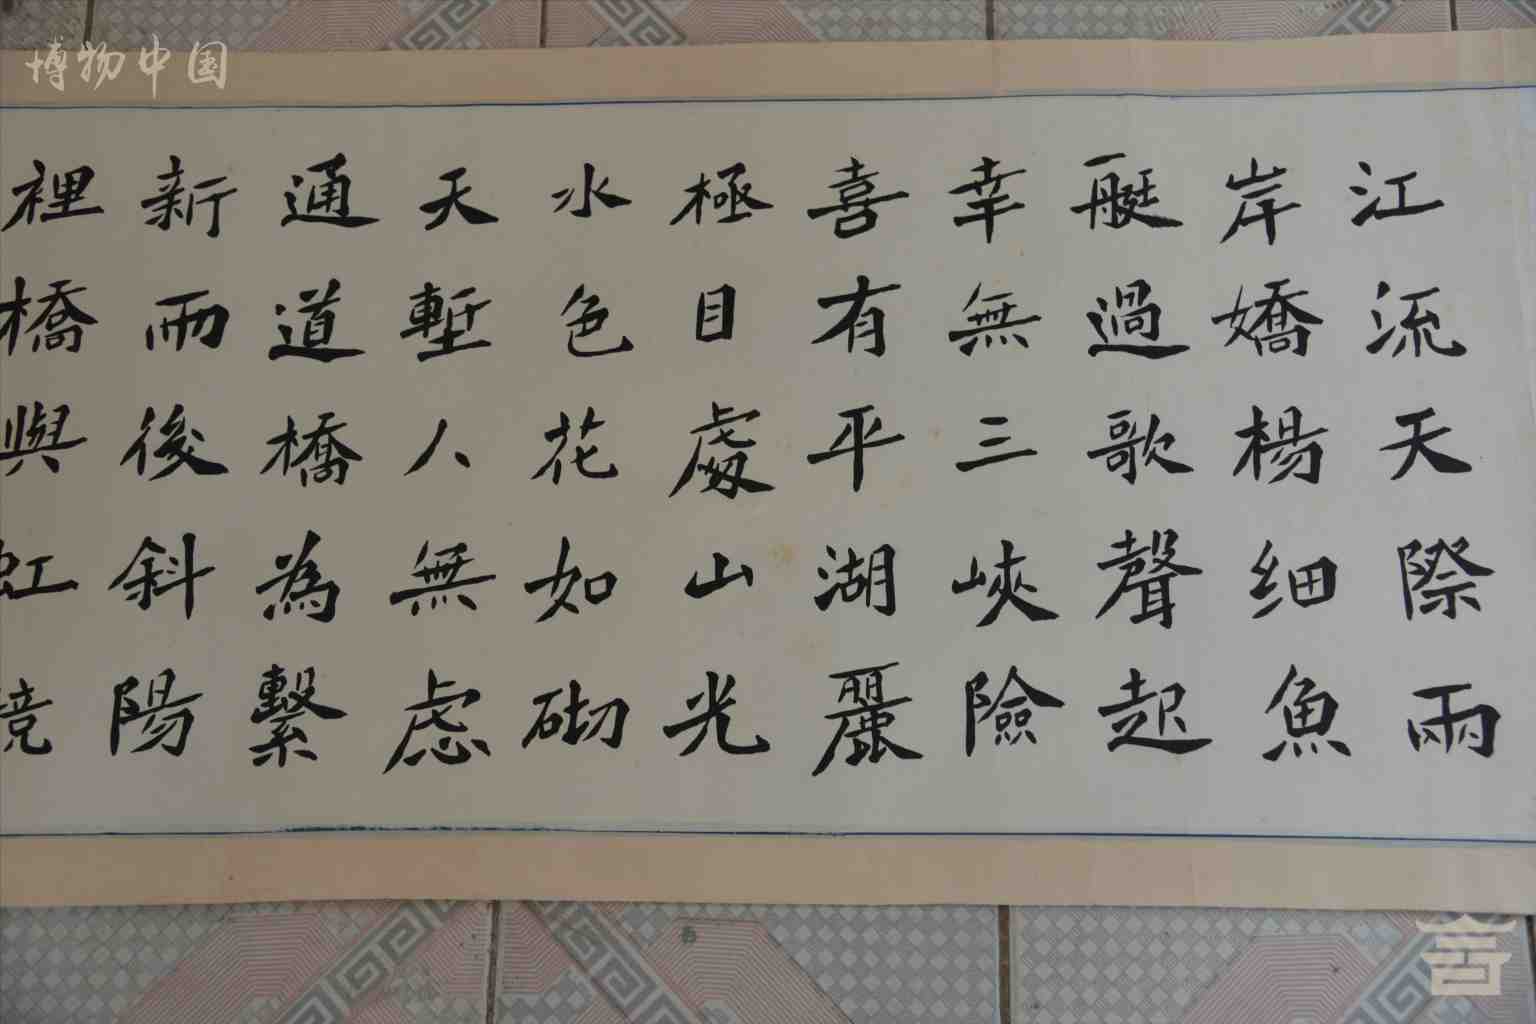 博物中国
江流天際雨
岸嬌楊细魚
艇過歌聲起
幸無三峽險
喜有平湖麗
極目處山光
水色花如砌
天塹人無慮
通道橋為繫
新雨後斜陽
裡橋與虹境